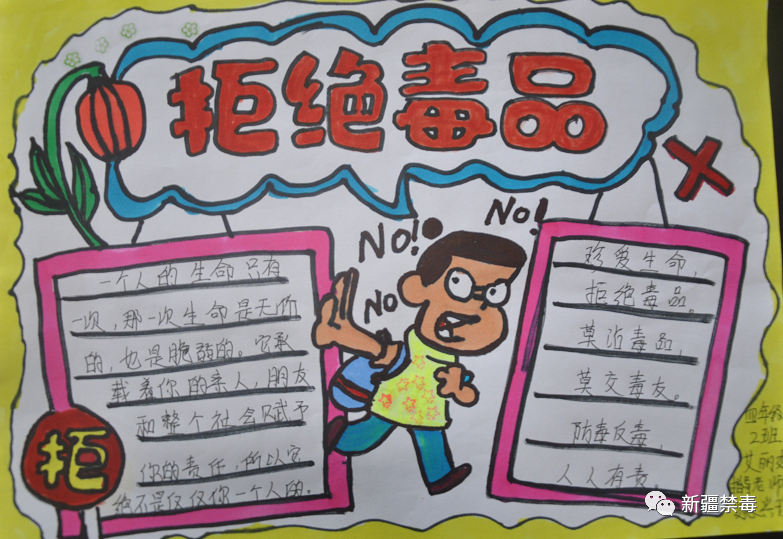 拒绝毒品
No!
No!
No
一个人的生命只有
一次，那一次生命是无价
的，也是脆弱的。它承
载着你的亲人，朋友
和整个社会赋予
你的责任，所以它
绝不是仅仅你一个人的。
拒
珍爱生命，
拒绝毒品。
莫沾毒品，
莫交毒友。
防毒反毒，
人人有责。
四年级
2班
艾丽
指导老师
新疆禁毒